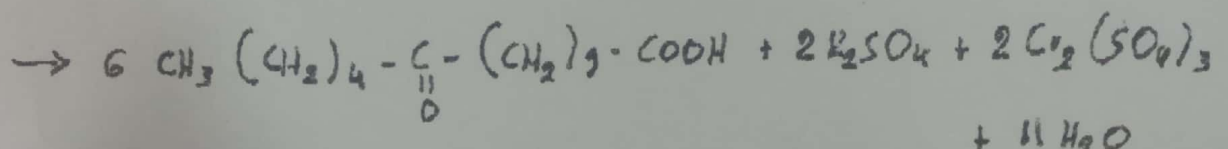 → 6 CH₃ (CH₂)₄ - C - (CH₂)₉ - COOH + 2 K₂SO₄ + 2 Cr₂ (SO₄)₃
||
O
+ 11 H₂O